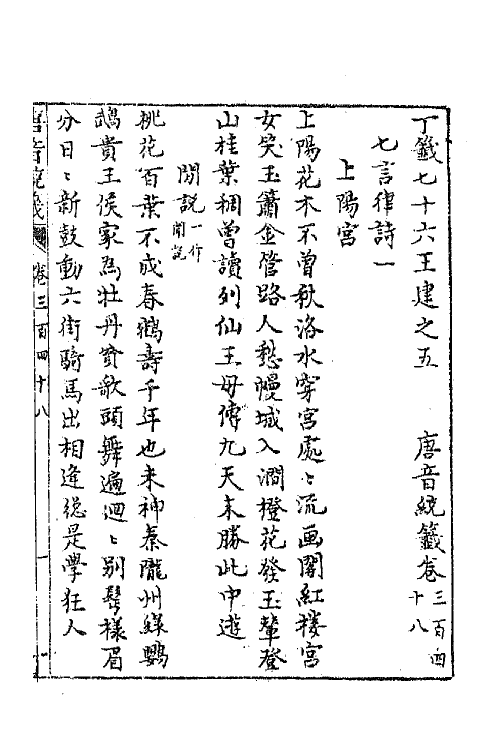 丁籤七十六王建之五　唐音統籤卷三百四十八
七言律詩一
上陽宮
上陽花木不曾秋洛水穿宮處〻流画閣紅楼宮
女笑玉簫金管路人愁幔城入澗橙花發玉輦登
山桂葉稠曾讀列仙王母傳九天未勝此中遊
閒說一作聞說
桃花百葉不成春鶴壽千年也未神秦隴州縁鸚
鵡貴王侯家為牡丹貧歌頭舞遍迴〻別鬂樣眉
分日〻新鼓動六街騎馬出相逢總是學狂人
唐音統籤　卷三百四十八　一